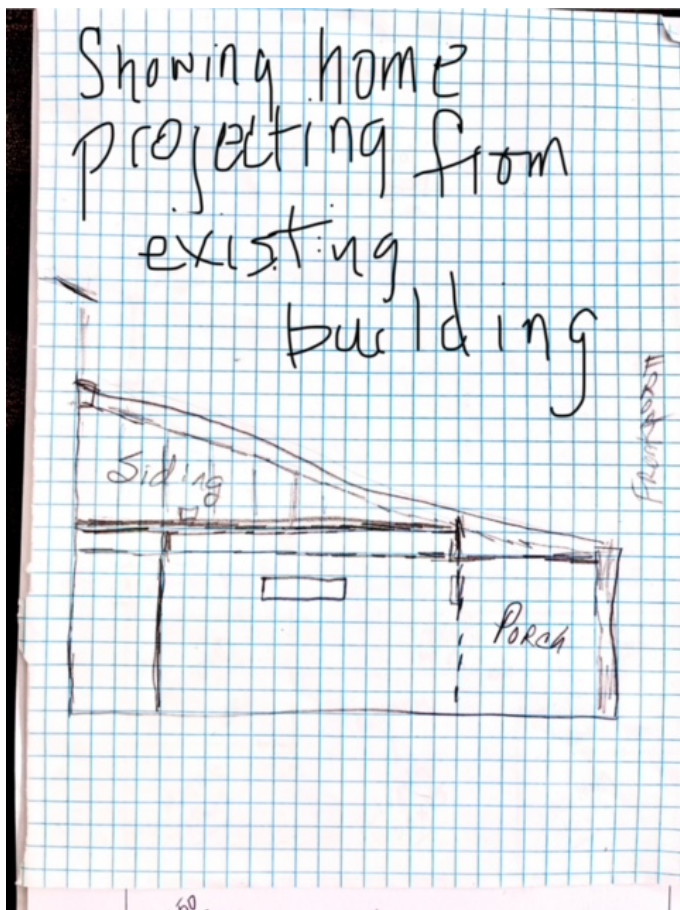 Showing home
projecting from
existing
building
Siding
Porch
50